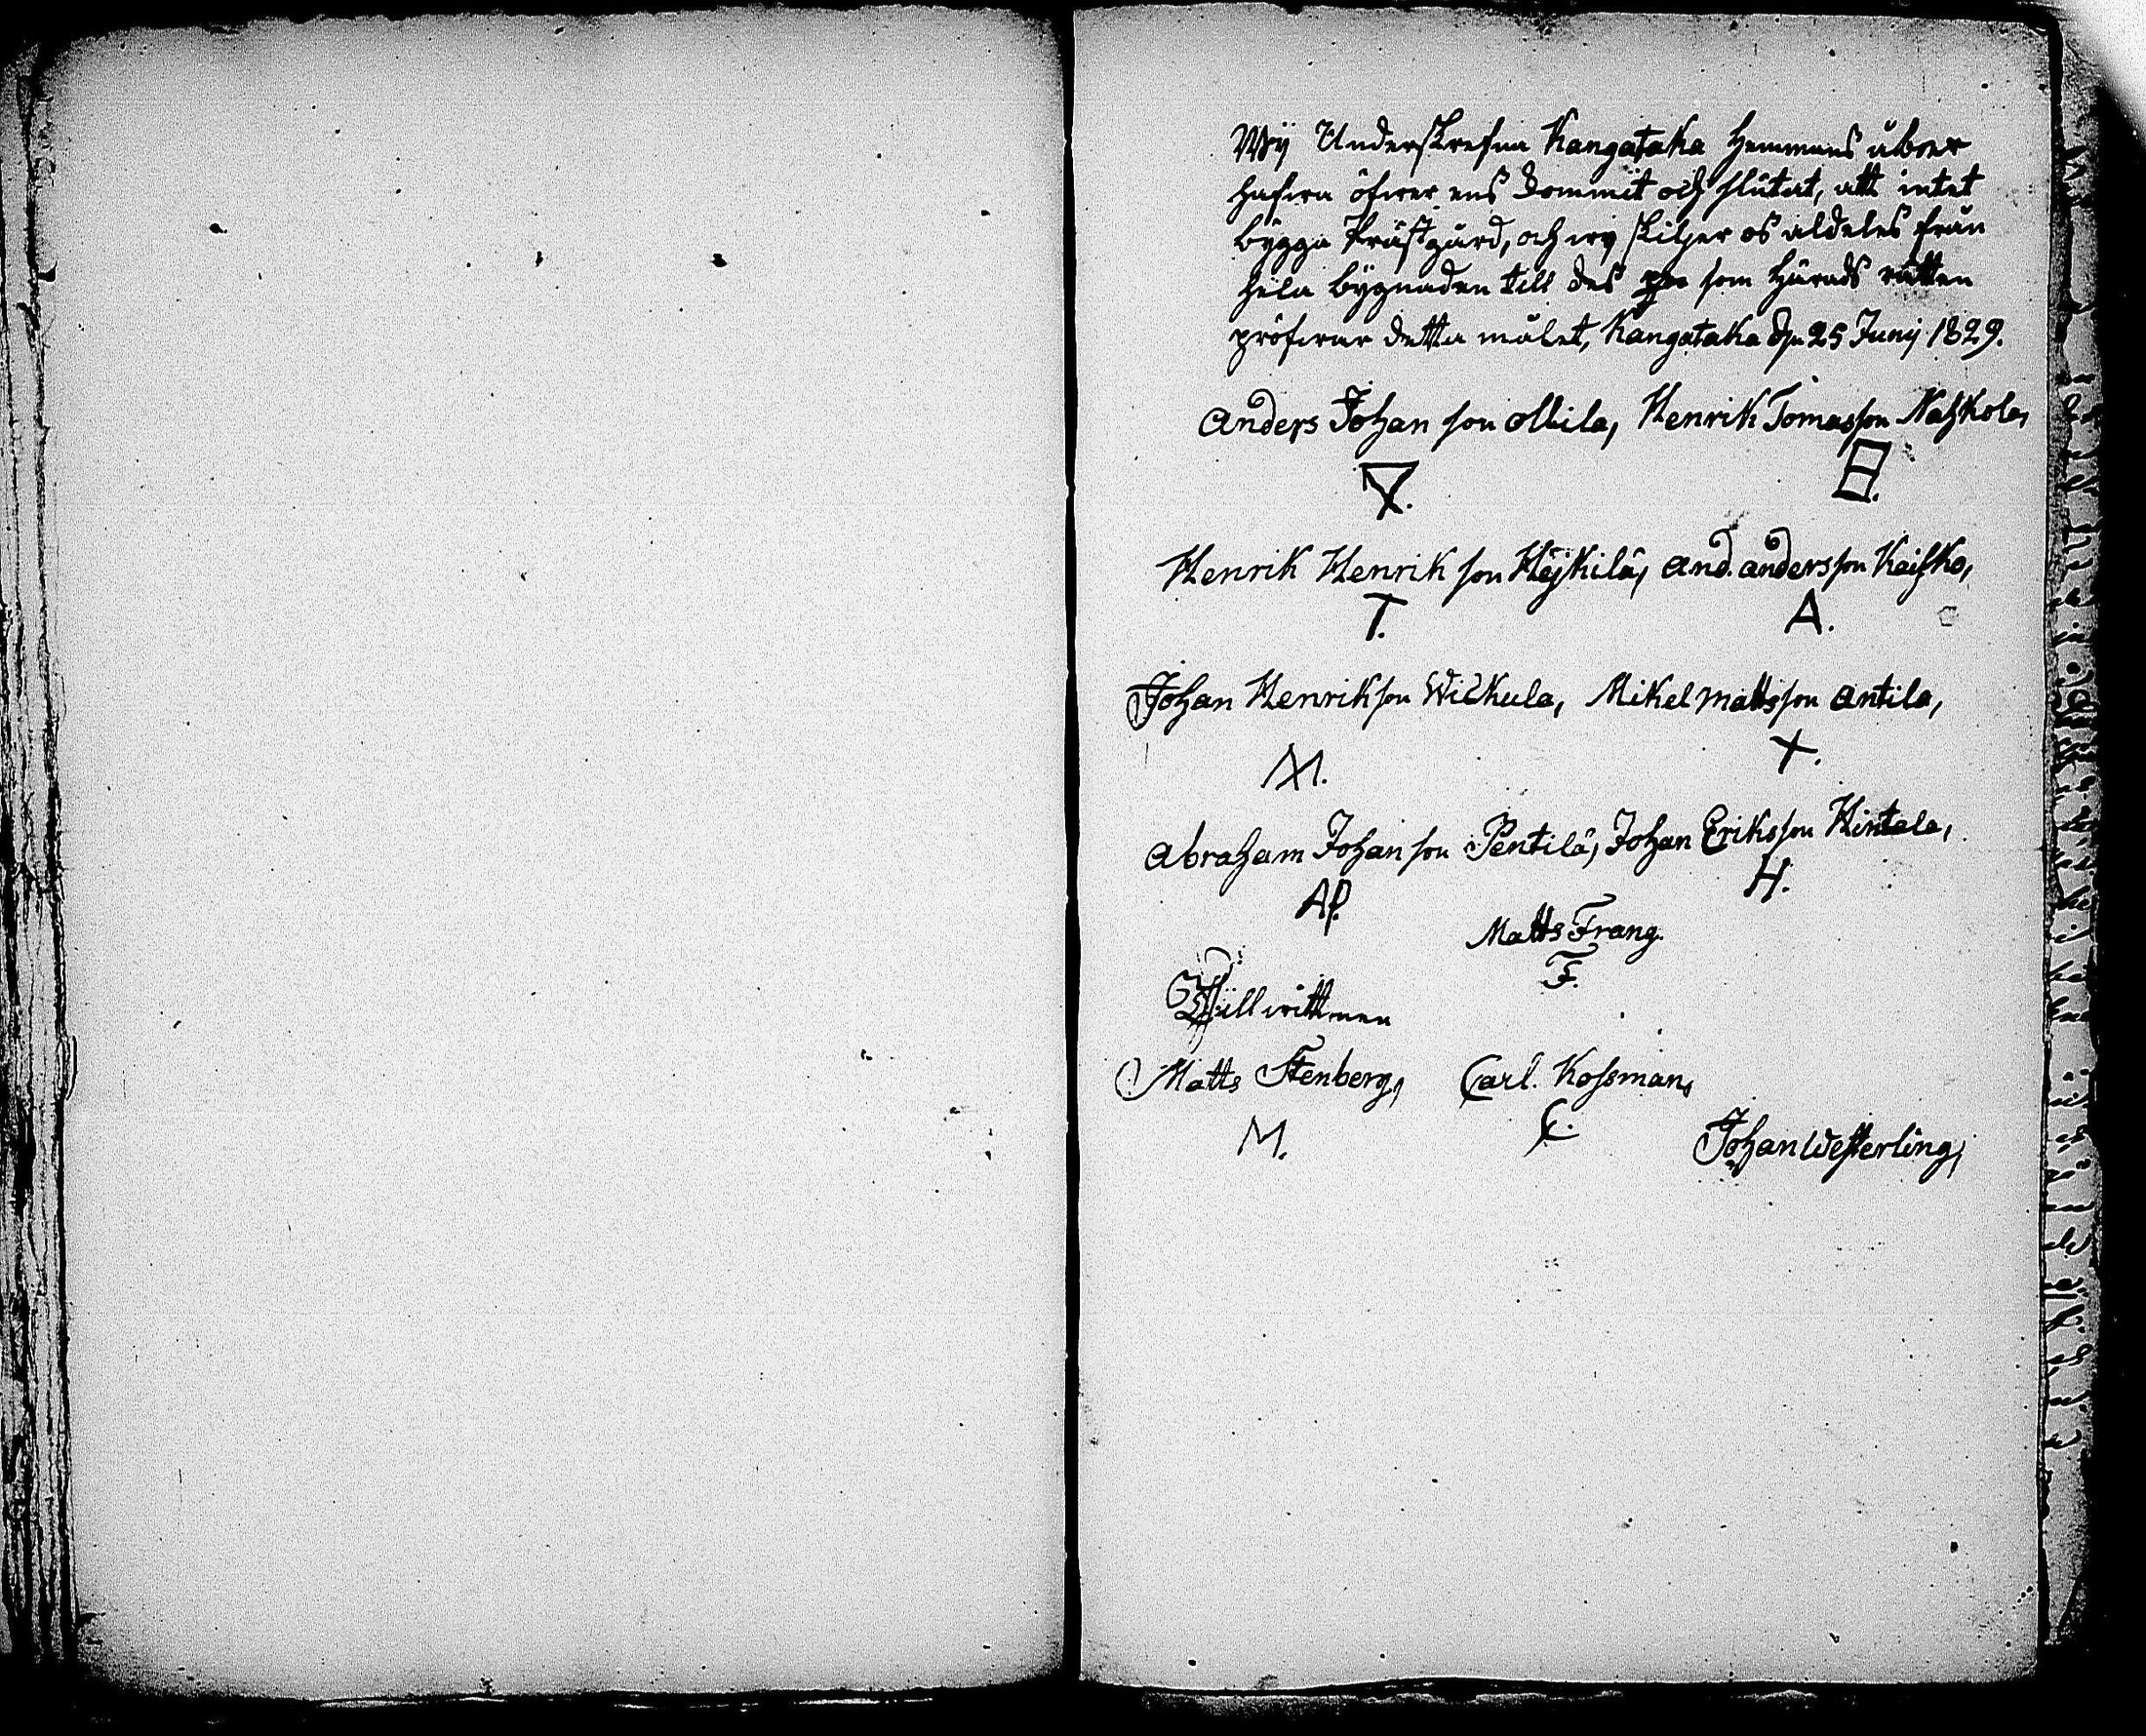 Wÿ Underskrefna Kangataka Hemmans åboer
hafwa öfwer ens kommit och slutat, att intet
bygga Prästgård, och wÿ skiljer os aldeles från
hela bÿgnaden till des som Härads rätten
pröfwar detta målet, Kangataka d. 25 Junij 1829.
Anders Johan son Ollila, Henrik Tomasson Nahkola,
Henrik Henrik son Hejkilä, And. andersson Kaisko,
T. A.
Johan Henrikson Wickula, Mikel mattsson Antila,
M. X.
Abraham Johan son Pentilä, Johan Eriksson Hintala,
AP. H.
Matts Frang.
F.
Till witt men
Matts Stenberg, Carl. Kossman,
M. C.
Johan Westerling,